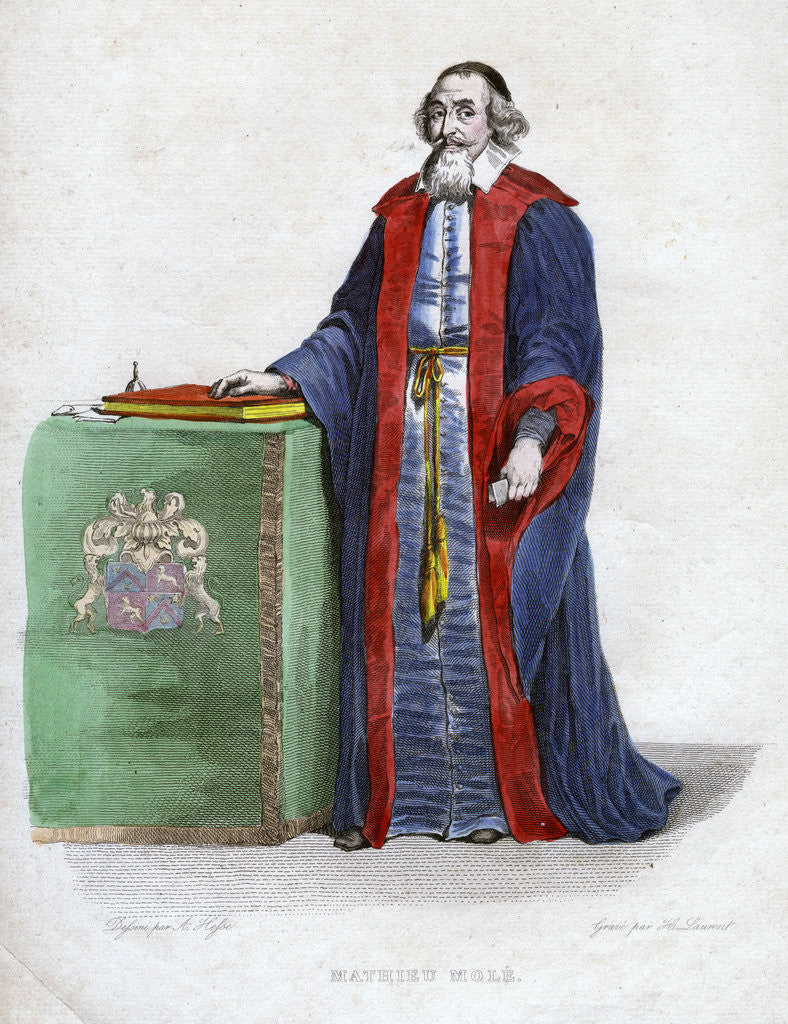 Dessiné par A. Hesse
Gravé par H. Laurent
MATHIEU MOLÉ.